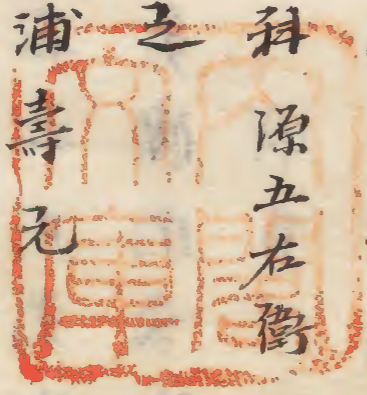 科源五右衛
之
浦壽元